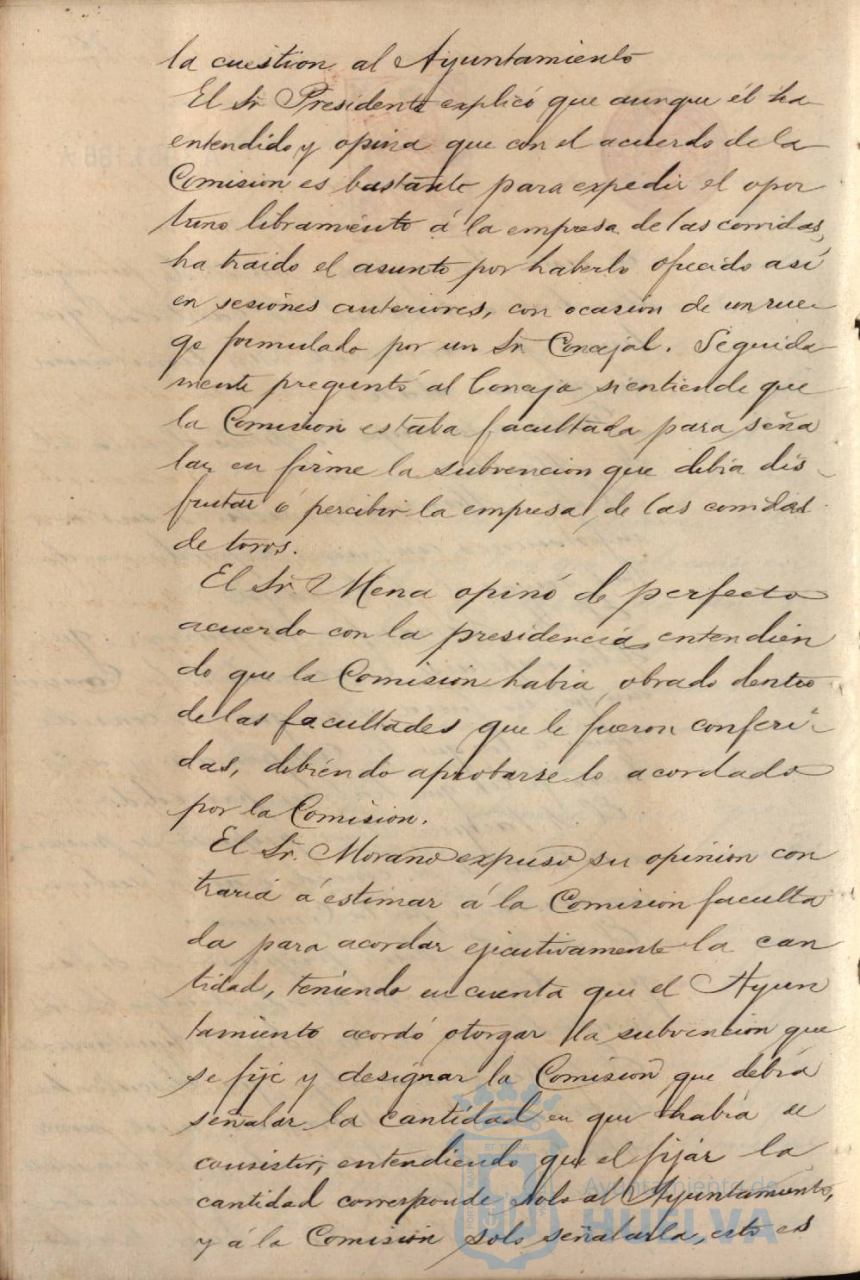 la cuestion al Ayuntamiento
El Sr. Presidente explicó que aunque él ha
entendido y opina que con el acuerdo de la
Comision es bastante para expedir el opor
tuno libramiento á la empresa de las corridas,
ha traido el asunto por haberlo ofrecido así
en sesiones anteriores, con ocasión de un rue-
go formulado por un Sr. Concejal. Seguida
mente preguntó al Concejo si entiende que
la Comision estaba facultada para seña
lar en firme la subvencion que debia dis-
frutar ó percibir la empresa de las corridas
de toros.
El Sr. Mena opinó de perfecto
acuerdo con la presidencia, entendien
do que la Comisión habia obrado dentro
de las facultades que le fueron conferi-
das, debiendo aprobarse lo acordado
por la Comision.
El Sr. Morano expuso su opinion con
traria á estimar á la Comision faculta
da para acordar ejecutivamente la can
tidad, teniendo en cuenta que el Ayun
tamiento acordó otorgar la subvencion que
se fije y designar la Comision que debia
señalar la cantidad en que habia de
consistir, entendiendo que el fijar la
cantidad corresponde solo al Ayuntamiento,
y á la Comisión solo señalarla, esto es
Ayuntamiento de
HUELVA